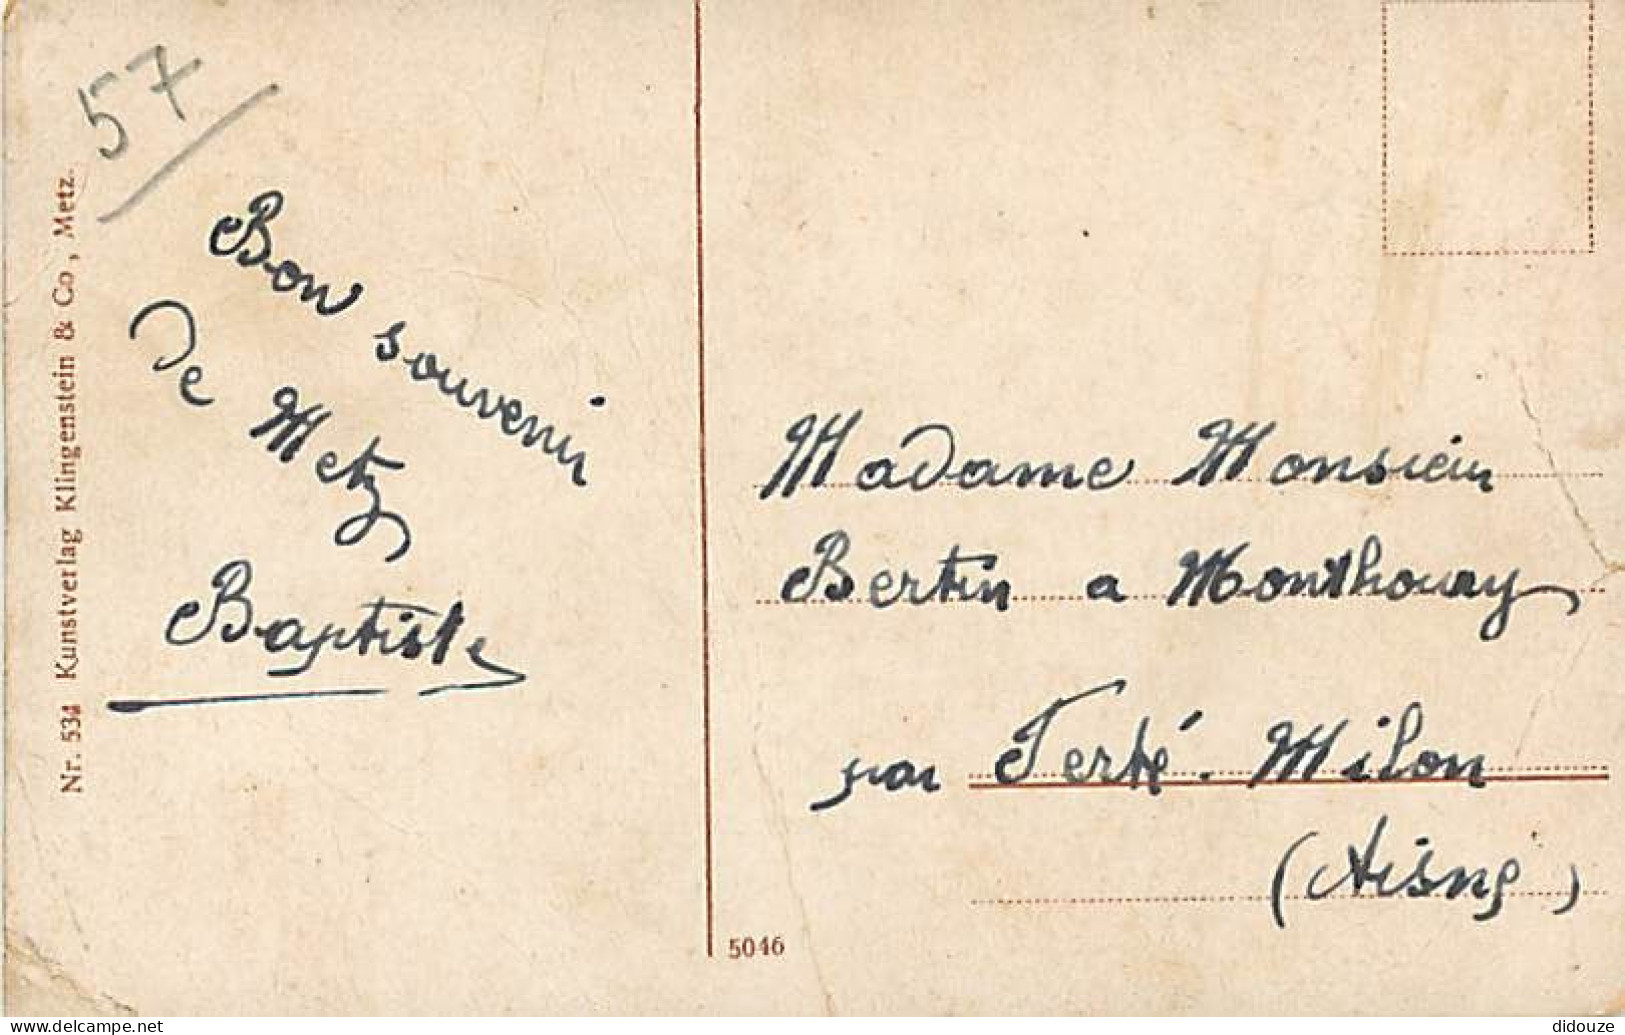 57
Nr. 534 Kunstverlag Klingenstein & Co, Metz.
Bon souvenir
de Metz
Baptiste
Madame Monsieur
Bertin a Monthoury
par Ferté-Milon
(Aisne)
5046
delcampe.net
didouze